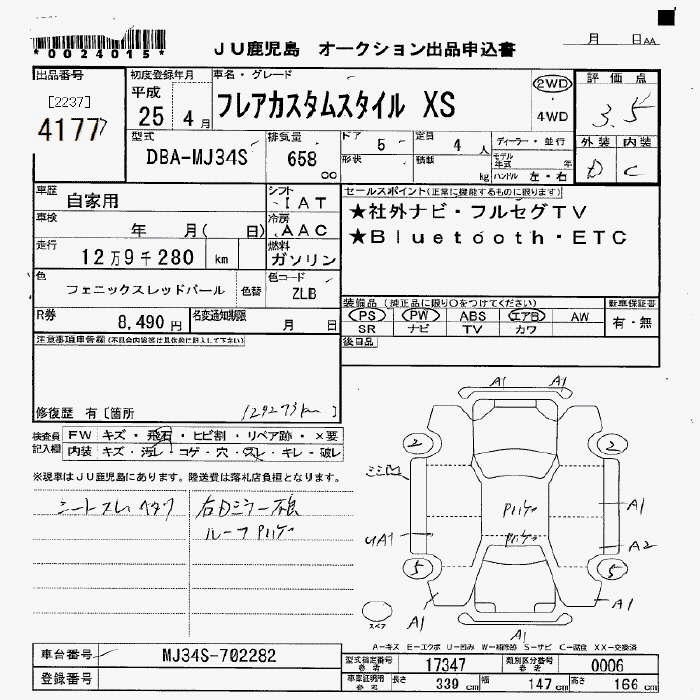 *0024015*
JU鹿児島 オークション出品申込書
月 日AA
出品番号
[2237]
4177
初度登録年月
平成
25 4月
車名・グレード
フレアカスタムスタイル XS
2WD
・
4WD
評価点
3.5
外装 内装
D C
型式
DBA-MJ34S
排気量
658
cc
ドア 5
形状
定員 4 人
積載 kg
ディーラー・並行
モデル年式 年
ハンドル 左・右
車歴 自家用
シフト IAT
車検 年 月( 日)
冷房 AAC
走行 12万9千280 km
燃料 ガソリン
色 フェニックスレッドパール 色替
色コード ZLB
R券 8,490 円
名変通知期限 月 日
セールスポイント(正常に機能するものに限ります)
★社外ナビ・フルセグTV
★Bluetooth・ETC
装備品(純正品に限り○をつけてください)
PS PW ABS エアB AW
SR ナビ TV カワ
新車保証書
有・無
後日品
注意事項車骨欄(不具合内容等は具体的に記入して下さい)
修復歴 有〔箇所 〕
(129273km)
検査員記入欄
FW キズ・飛石・ヒビ割・リペア跡・×要
内装 キズ・汚レ・コゲ・穴・スレ・キレ・破レ
※現車はJU鹿児島にあります。陸送費は落札店負担となります。
シートスレ ヘタリ
右Dミラー不良
ルーフ Pハゲ
A1 A1
2 2
Pハゲ
Pハゲ
A1
A2
UA1
5 5
A1 A1
A1
スペア
A-キズ E-エクボ U-凹み W-補修跡 S-サビ C-腐食 XX-交換済
車台番号 MJ34S-702282
登録番号
型式指定番号 参考 17347
類別区分番号 参考 0006
車庫証明用 参考 長さ 339 cm 幅 147 cm 高さ 166 cm